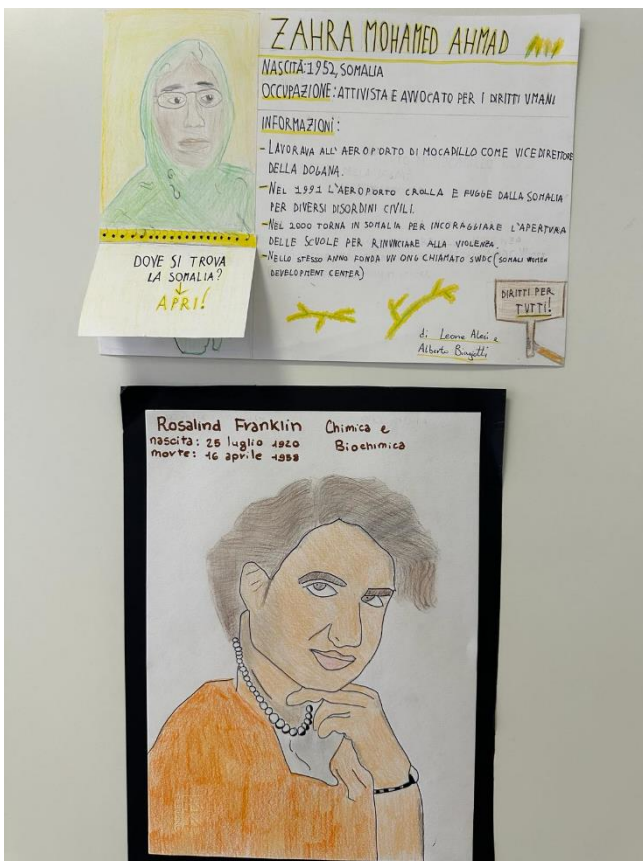 ZAHRA MOHAMED AHMAD
NASCITÀ: 1952, SOMALIA
OCCUPAZIONE: ATTIVISTA E AVVOCATO PER I DIRITTI UMANI
INFORMAZIONI:
- LAVORAVA ALL'AEROPORTO DI MOCADILLO COME VICE DIRETTORE
DELLA DOGANA.
- NEL 1991 L'AEROPORTO CROLLA E FUGGE DALLA SOMALIA
PER DIVERSI DISORDINI CIVILI.
- NEL 2000 TORNA IN SOMALIA PER INCORAGGIARE L'APERTURA
DELLE SCUOLE PER RINUNCIARE ALLA VIOLENZA.
- NELLO STESSO ANNO FONDA UN ONG CHIAMATO SWDC (SOMALI WOMEN
DEVELOPMENT CENTER)
DOVE SI TROVA
LA SOMALIA?
APRI!
DIRITTI PER
TUTTI!
di Leone Aloisi e
Alberto Biagetti
Rosalind Franklin Chimica e
nascita: 25 luglio 1920 Biochimica
morte: 16 aprile 1958